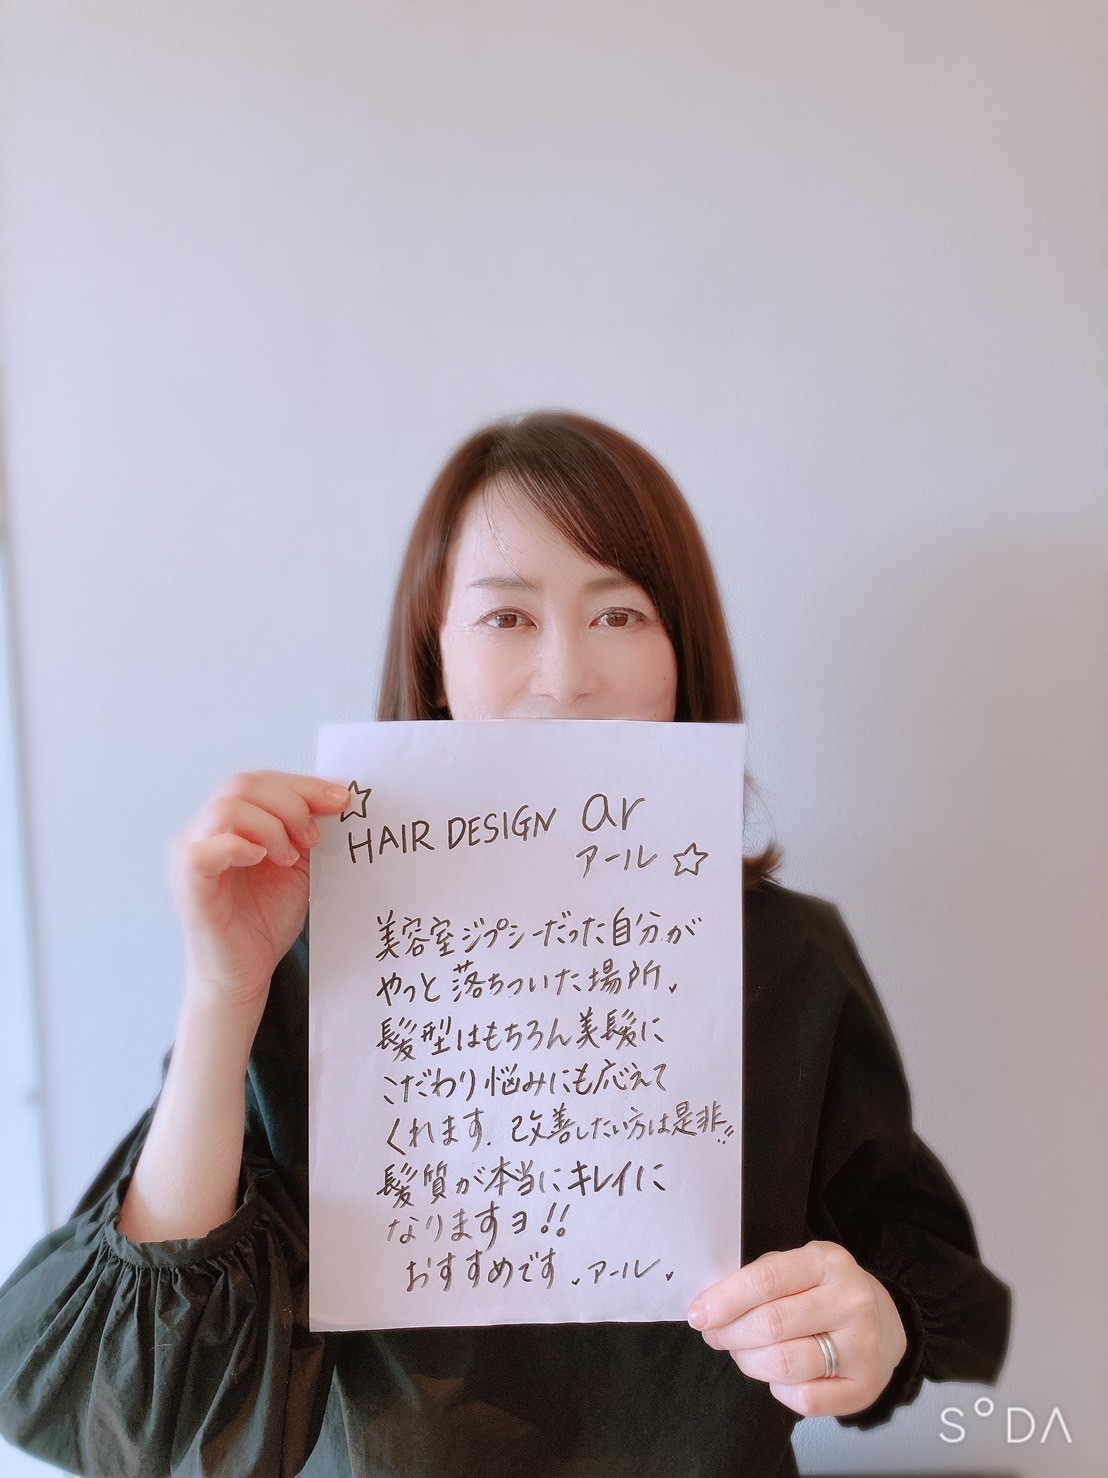 ☆
HAIR DESIGN ar
アール ☆
美容室ジプシーだった自分が
やっと落ちついた場所。
髪型はもちろん美髪に
こだわり悩みにも応えて
くれます。改善したい方は是非!!
髪質が本当にキレイに
なりますヨ!!
おすすめです。アール。
SODA